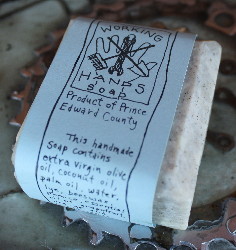 WORKING
HANDS
SOAP
Product of Prince
Edward County
This handmade
Soap contains
extra virgin olive
oil, coconut oil,
palm oil, water,
lye,